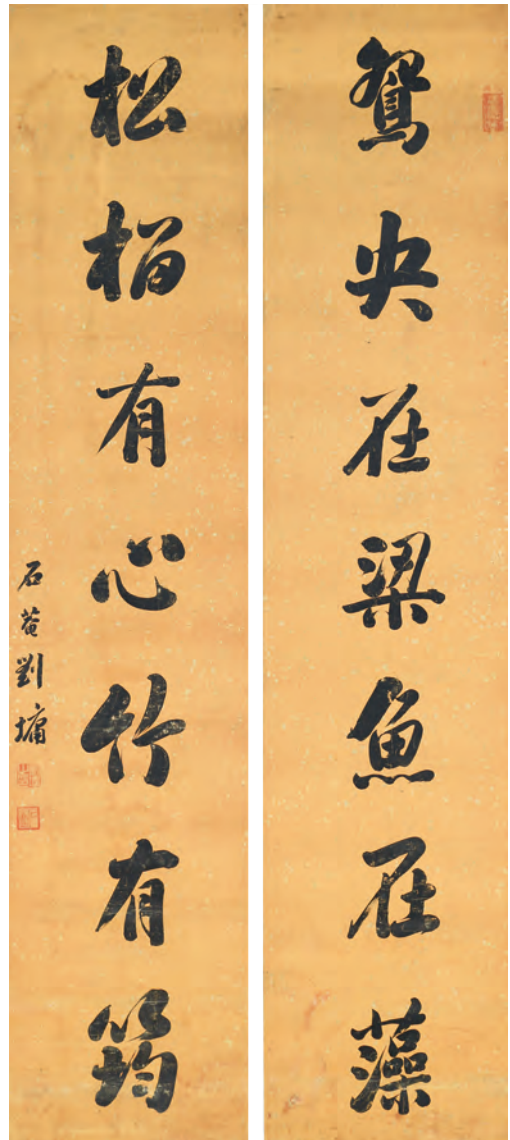 鴛央在梁魚在藻
松栢有心竹有筠
石菴劉墉